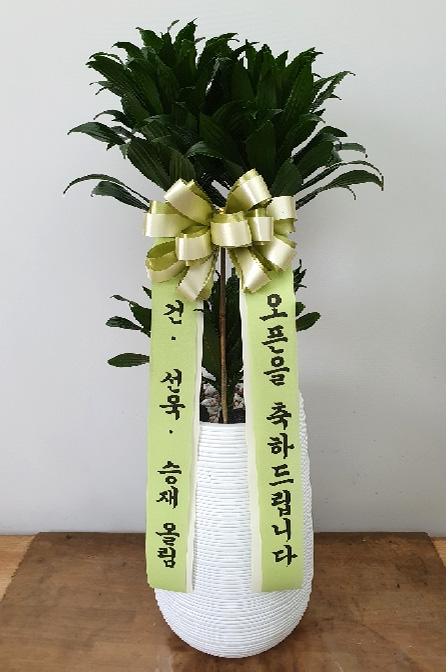 오픈을 축하드립니다
건 · 선욱 · 승재 올림